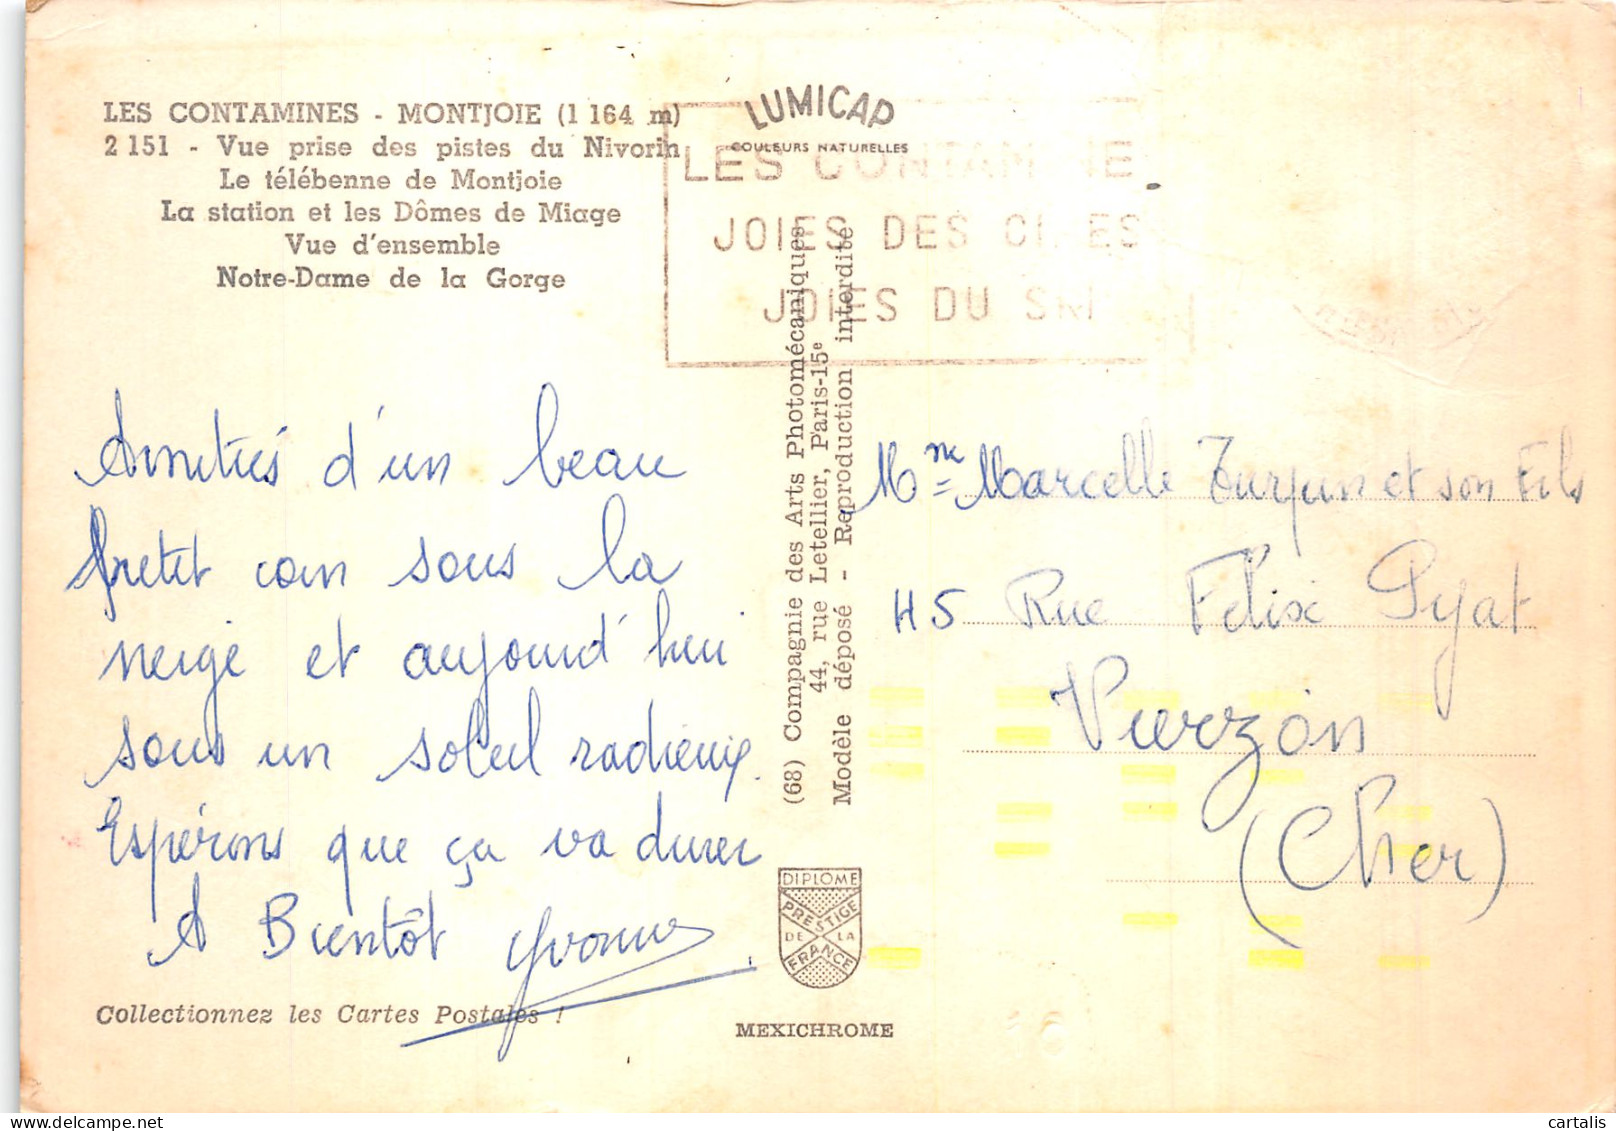 LES CONTAMINES - MONTJOIE (1 164 m)
2 151 - Vue prise des pistes du Nivorin
Le télébenne de Montjoie
La station et les Dômes de Miage
Vue d'ensemble
Notre-Dame de la Gorge
LUMICAP
COULEURS NATURELLES
LES CONTAMINE
JOIES DES CIMES
JOIES DU SKI
Amitiés d'un beau
petit coin sous la
neige et aujourd'hui
sous un soleil radieux.
Espérons que ça va durer
A Bientôt Yvonne
Collectionnez les Cartes Postales !
(68) Compagnie des Arts Photomécaniques
44, rue Letellier, Paris-15e
Modèle déposé - Reproduction interdite
DIPLOME
PRESTIGE
DE LA
FRANCE
MEXICHROME
Mme Marcelle Turpin et son Fils
45 Rue Félix Pyat
Vierzon
(Cher)
cartalis